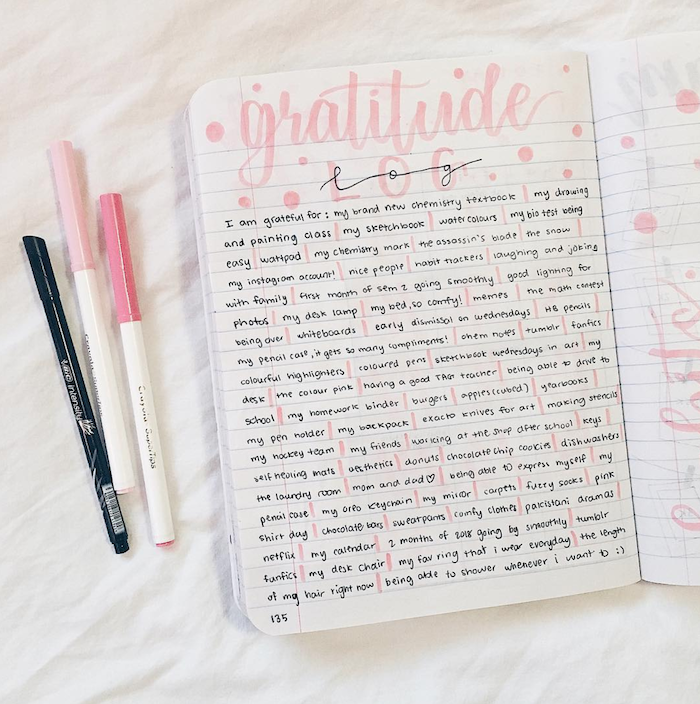 gratitude
LOG
log
I am grateful for : my brand new chemistry textbook | my drawing
and painting class | my sketchbook | watercolours | my bio test being
easy | wattpad | my chemistry mark | the assassin's blade | the snow |
my instagram account! | nice people | habit trackers | laughing and joking
with family | first month of sem 2 going smoothly | good lighting for
photos | my desk lamp | my bed, so comfy! | memes | the math contest
being over | whiteboards | early dismissal on wednesdays | HB pencils |
my pencil case, it gets so many compliments! | chem notes | tumblr | fanfics
colourful highlighters | coloured pens | sketchbook wednesdays in art | my
desk | the colour pink | having a good TAG teacher | being able to drive to
school | my homework binder | burgers | apples (cubed) | yearbooks |
my pen holder | my backpack | exacto knives for art | making stencils
my hockey team | my friends | working at the shop after school | keys |
self healing mats | aesthetics | donuts | chocolate chip cookies | dishwashers
the laundry room | mom and dad♡ | being able to express myself | my
pencil case | my oreo keychain | my mirror | carpets | fuzzy socks | pink
shirt day | chocolate bars | sweatpants | comfy clothes | pakistani dramas |
netflix | my calendar | 2 months of 2018 going by smoothly | tumblr
fanfics | my desk chair | my fav ring that i wear everyday | the length
of my hair right now | being able to shower whenever i want to :)
135
Crayola SuperTips